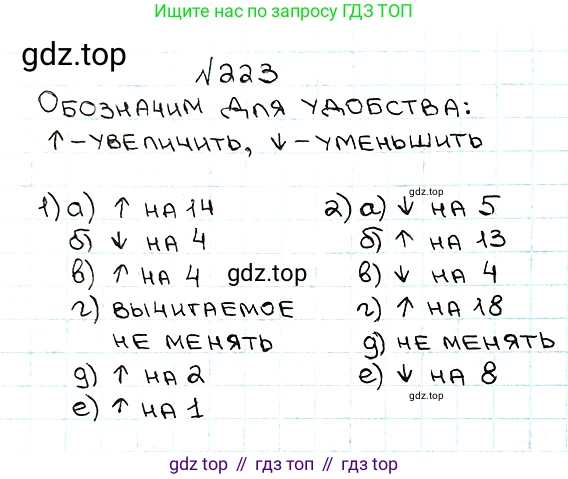 Ищите нас по запросу ГДЗ ТОП
gdz.top
№223
Обозначим для удобства:
↑ – увеличить, ↓ – уменьшить
gdz.top
1) а) ↑ на 14
б) ↓ на 4
в) ↑ на 4
г) вычитаемое
не менять
д) ↑ на 2
е) ↑ на 1
gdz.top
2) а) ↓ на 5
б) ↑ на 13
в) ↓ на 4
г) ↑ на 18
д) не менять
е) ↓ на 8
gdz.top
gdz.top // гдз топ // гдз.top